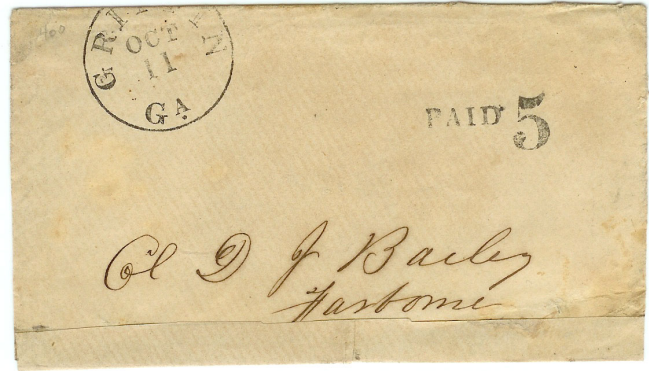 GRIFFIN
OCT
11
GA
PAID 5
Col D J Bailey